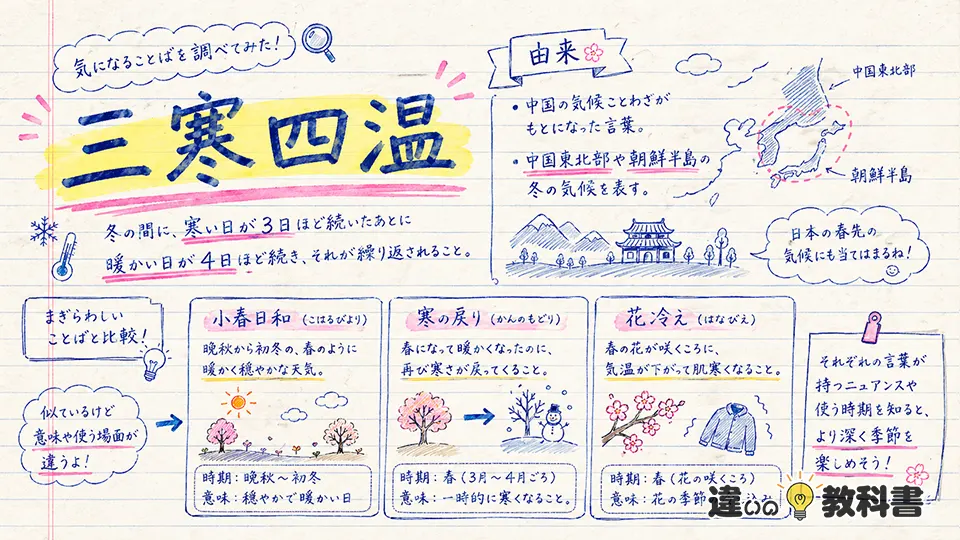 気になることばを調べてみた!
三寒四温
冬の間に、寒い日が3日ほど続いたあとに
暖かい日が4日ほど続き、それが繰り返されること。
由来
・中国の気候ことわざが
もとになった言葉。
・中国東北部や朝鮮半島の
冬の気候を表す。
中国東北部
朝鮮半島
日本の春先の
気候にも当てはまるね!
まぎらわしい
ことばと比較!
似ているけど
意味や使う場面が
違うよ!
小春日和(こはるびより)
晩秋から初冬の、春のように
暖かく穏やかな天気。
時期:晩秋〜初冬
意味:穏やかで暖かい日
寒の戻り(かんのもどり)
春になって暖かくなったのに、
再び寒さが戻ってくること。
時期:春(3月〜4月ごろ)
意味:一時的に寒くなること。
花冷え(はなびえ)
春の花が咲くころに、
気温が下がって肌寒くなること。
時期:春(花の咲くころ)
意味:花の季節
込み
それぞれの言葉が
持つニュアンスや
使う時期を知ると、
より深く季節を
楽しめそう!
違いの教科書